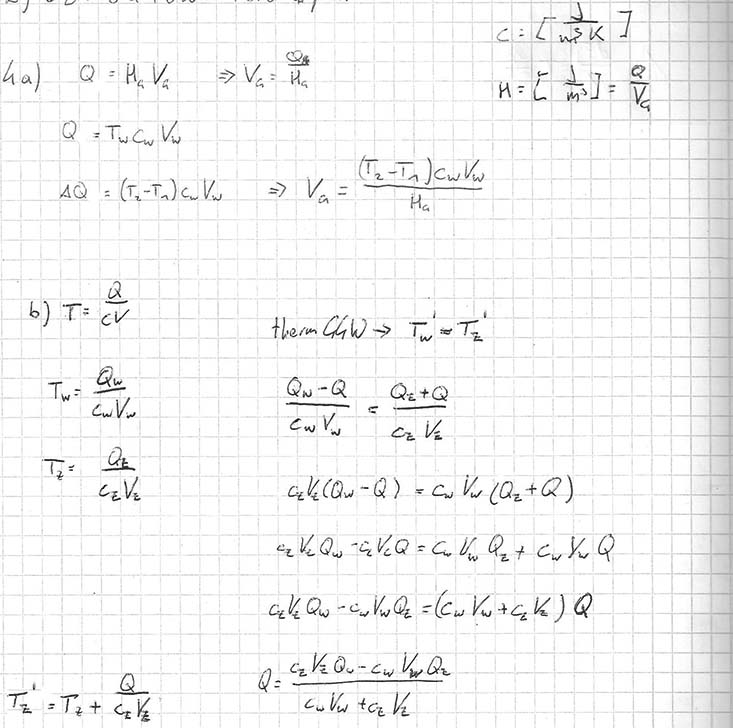 C = [ J / m³ K ]
4a) Q = H_G V_G ⇒ V_G = Q / H_G
H = [ J / m³ ] = Q / V_G
Q = T_W c_W V_W
ΔQ = (T_2 - T_1) c_W V_W ⇒ V_G = (T_2 - T_1) c_W V_W / H_G
b) T = Q / cV
therm GGW → T_W' = T_Z'
T_W = Q_W / c_W V_W
(Q_W - Q) / c_W V_W = (Q_Z + Q) / c_Z V_Z
T_Z = Q_Z / c_Z V_Z
c_Z V_Z (Q_W - Q) = c_W V_W (Q_Z + Q)
c_Z V_Z Q_W - c_Z V_Z Q = c_W V_W Q_Z + c_W V_W Q
c_Z V_Z Q_W - c_W V_W Q_Z = (c_W V_W + c_Z V_Z) Q
Q = (c_Z V_Z Q_W - c_W V_W Q_Z) / (c_W V_W + c_Z V_Z)
T_Z' = T_Z + Q / c_Z V_Z